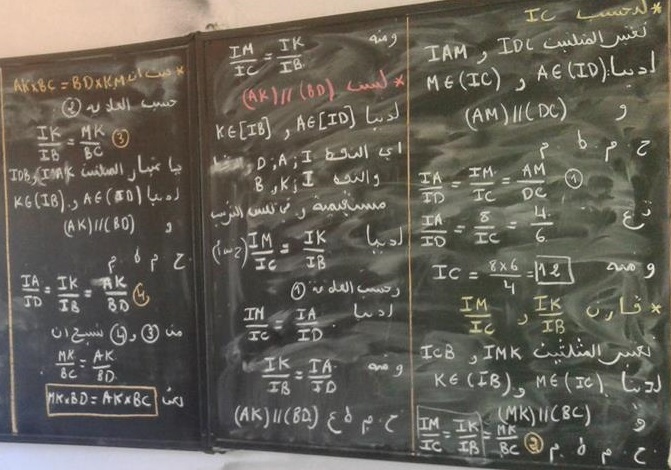 * لنحسب IC
نعتبر المثلثين IDC و IAM
لدينا: A∈(ID) و M∈(IC)
و (AM)//(DC)
ح . م . ط . م
IA/ID = IM/IC = AM/DC ①
ت ع IA/ID = 8/IC = 4/6
و منه IC = 8×6/4 = 12
* قارن IK/IB و IM/IC
نعتبر المثلثين IMK و ICB
لدينا M∈(IC) و K∈(IB)
و (MK)//(BC)
ح . م . ط . م IM/IC = IK/IB = MK/BC ②
و منه IM/IC = IK/IB
* (AK)//(BD)
لدينا A∈[ID] و K∈[IB]
اي النقط I ; A ; D
والنقط I ; K ; B
مستقيمية و في نفس الترتيب
لدينا IM/IC = IK/IB
وحسب العلاقة ①
لدينا IM/IC = IA/ID
و منه IK/IB = IA/ID
ح . م . ط ع (AK)//(BD)
* AK×BC = BD×KM
حسب العلاقة ②
IK/IB = MK/BC ③
المثلثين IAK و IDB
لدينا A∈(ID) و K∈(IB)
و (AK)//(BD)
ح . م . ط . م
IA/ID = IK/IB = AK/BD ④
من ③ و ④ نستنتج ان
MK/BC = AK/BD
MK×BD = AK×BC